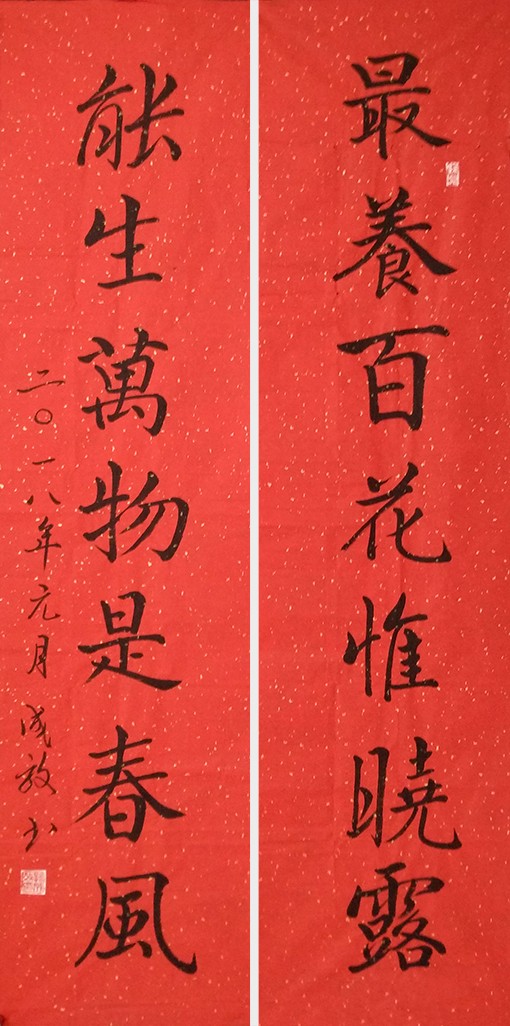 最養百花惟曉露
能生萬物是春風
二〇一八年元月成敖书